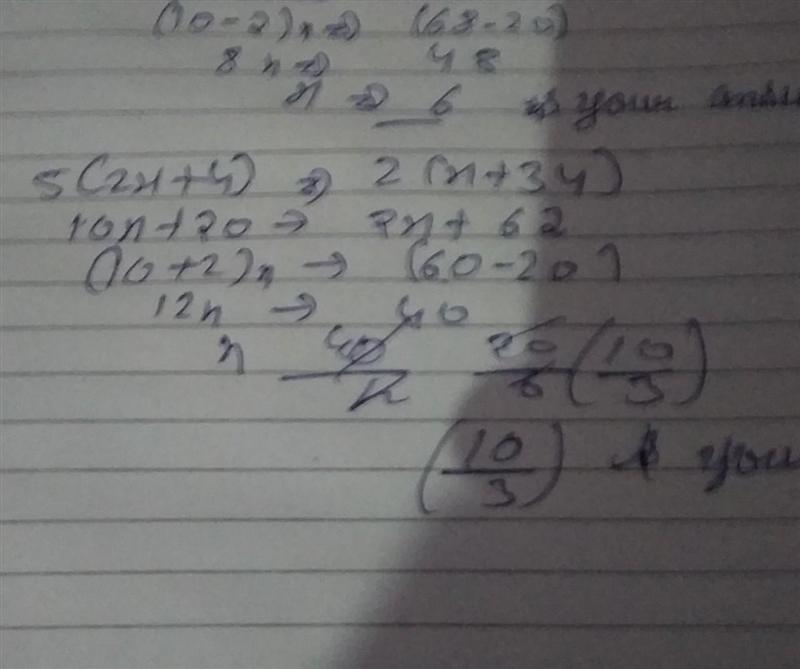 (10-2)n⇒ (68-20)
8n⇒ 48
n ⇒ 6 is your
5(2n+4) ⇒ 2(n+34)
10n+20→ 2n+ 62
(10+2)n → (60-20)
12n → 40
n 40/12 20/6 (10/3)
(10/3) is you